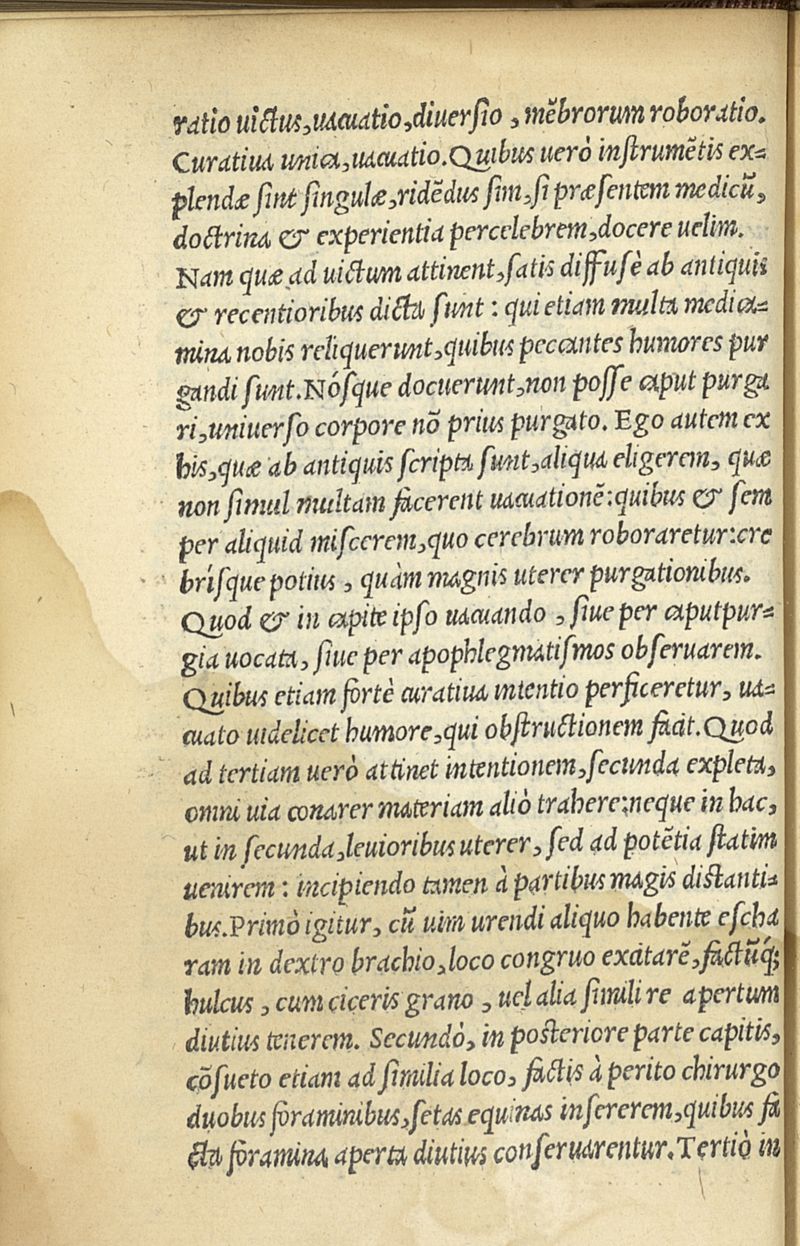 ratio uictus,uacuatio,diuersio, mẽbrorum roboratio.
Curatiua unica,uacuatio.Quibus uerò instrumẽtis ex=
plendæ sint singulæ,ridẽdus sim,si præsentem medicũ,
doctrina & experientia percelebrem,docere uelim.
Nam quæ ad uictum attinent,satis diffusè ab antiquis
& recentioribus dicta sunt: qui etiam multa medica=
mina nobis reliquerunt,quibus peccantes humores pur
gandi sunt.Nósque docuerunt,non posse caput purga
ri,uniuerso corpore nõ prius purgato. Ego autem ex
his,quæ ab antiquis scripta sunt,aliqua eligerem, quæ
non simul multam facerent uacuationẽ:quibus & sem
per aliquid miscerem,quo cerebrum roboraretur:cre
brísque potius, quàm magnis uterer purgationibus.
Quod & in capite ipso uacuando, siue per caputpur=
gia uocata, siue per apophlegmatismos obseruarem.
Quibus etiam fortè curatiua intentio perficeretur, ua=
cuato uidelicet humore,qui obstructionem facit.Quod
ad tertiam uerò attinet intentionem,secunda expleta,
omni uia conarer materiam aliò trahere:neque in hac,
ut in secunda,leuioribus uterer, sed ad potẽtia statim
uenirem: incipiendo tamen à partibus magis distanti=
bus.Primò igitur, cũ uim urendi aliquo habente escha
ram in dextro brachio,loco congruo excitarẽ,factũq́;
hulcus, cum ciceris grano, uel alia simili re apertum
diutius tenerem. Secundò, in posteriore parte capitis,
cõsueto etiam ad similia loco, factis à perito chirurgo
duobus foraminibus,setas equinas insererem,quibus fa
cta foramina aperta diutius conseruarentur.Tertiò in